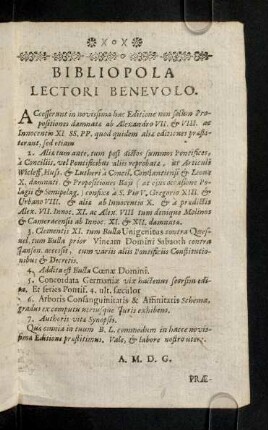 BIBLIOPOLA
LECTORI BENEVOLO.
ACcesserunt in novissima hac Editione non solùm Pro-
positiones damnatæ ab Alexandro VII. & VIII. ac
Innocentio XI. SS. PP. quod quidem aliæ editiones præsti-
terant, sed etiam
2. Alia tum ante, tum post dictos summos Pontifices,
à Conciliis, vel Pontificibus aliis reprobata, ut Articuli
Wicleff, Huss, & Lutheri à Concil. Constantiensi & Leone
X. damnati, & Propositiones Baji
à S. Pio V. Gregorio XIII. &
Urbano VIII. & alia ab Innocentio X. & à prædictis
Alex. VII. Innoc. XI. ac Alex. VIII. tum denique Molinos
& Cameracensis ab Innoc. XI. & XII. damnata.
3. Clementis XI. tum Bulla Unigenitus contra Ques-
nel, tum Bulla prior Vineam Domini Sabaoth contra
Jansen. accessit, cum variis aliis Pontificiis Constitutio-
nibus & Decretis.
4. Addita est Bulla Cœnæ Domini.
5. Concordata Germaniæ vix hactenus seorsim edi-
ta. Et series Pontif. 4. ult. sæculor.
6. Arboris Consanguinitatis & Affinitatis Schema,
gradus ex computu utriusque Juris exhibens.
7. Authoris vita Synopsis.
Quæ omnia in tuum B. L. commodum in hacce novis-
sima Editione præstitimus. Vale, & labore nostro utere.
A. M. D. G.
PRÆ-